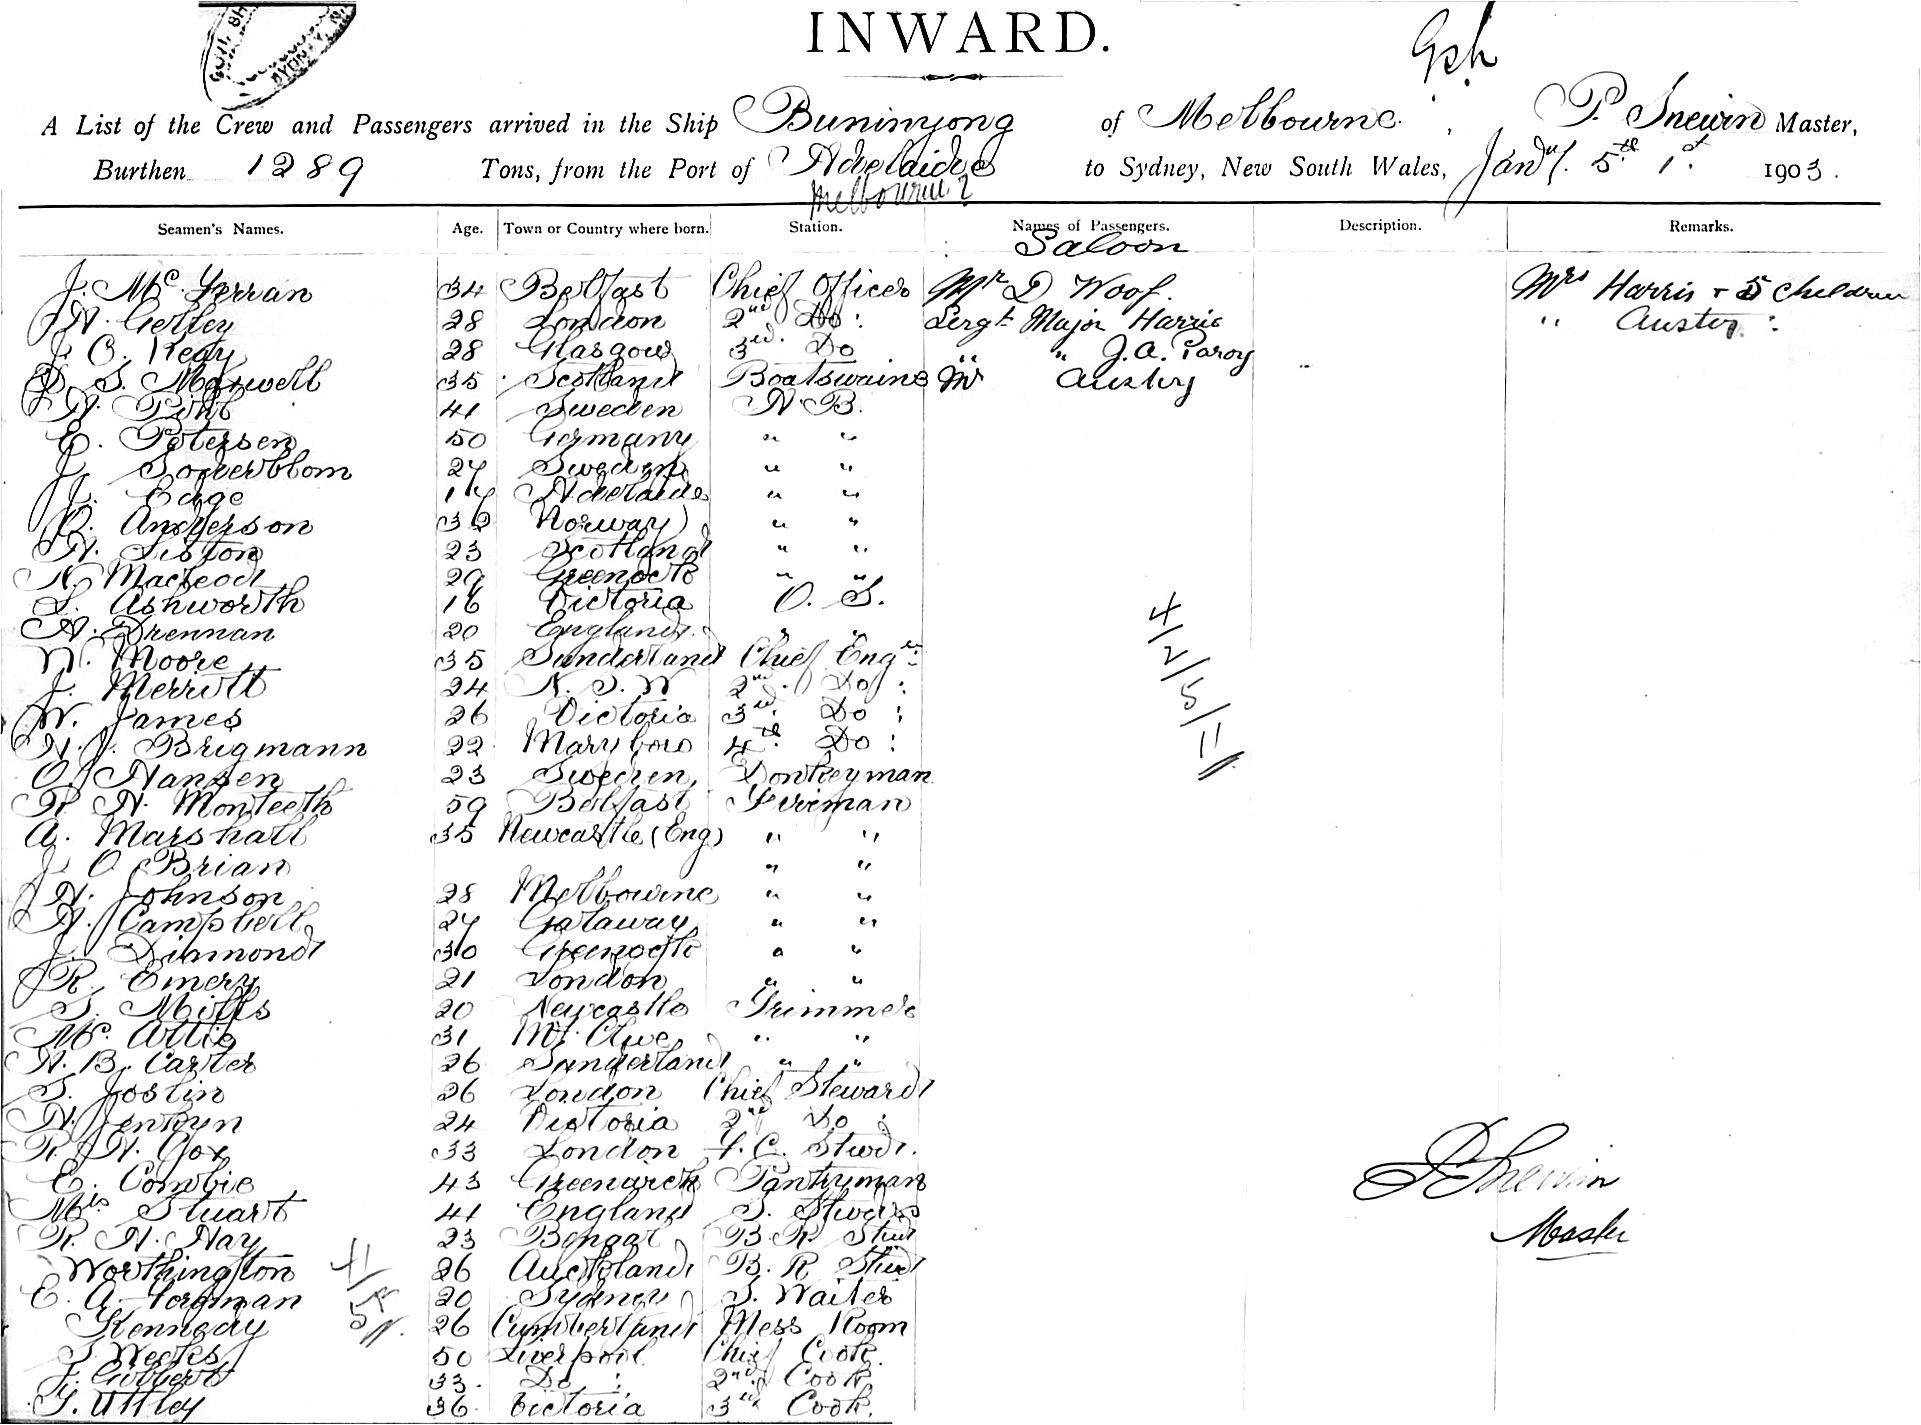 INWARD.
A List of the Crew and Passengers arrived in the Ship Buninyong of Melbourne, P. Snewin Master,
Burthen 1289 Tons, from the Port of Adelaide to Sydney, New South Wales, Jany. 5th 1st 1903.
Melbourne
Seamen's Names. Age. Town or Country where born. Station. Names of Passengers. Description. Remarks.
Saloon
J. Mc Ferran 34 Belfast Chief Officer Mr D Woof. Mrs Harris + 5 Children
28 London 2nd Do: Sergt Major Harris " Austey
28 Glasgow 3rd. Do " " J. A. Paroy
D. S. Maxwell 35 Scotland Boatswains Mr Austey
41 Sweden A. B.
E. Petersen 50 Germany " "
J. Soderblom 27 Sweden " "
J. Edge Adelaide " "
O. Anderson Norway " "
H. Liston 23 Scotland " "
N. Macleod 29 Greenock " "
S. Ashworth 16 Victoria O. S.
H. Drennan 20 England " "
W. Moore 35 Sunderland Chief Engr.
J. Merritt 24 N. S. W 2nd. Do:
W. James 26 Victoria 3rd. Do:
H. J. Brigmann 22 Maryboro 4th. Do:
O. Hansen 23 Sweden Donkeyman
R. H. Monteeth 59 Belfast Fireman
A. Marshall 35 Newcastle (Eng) " "
J. O Brian " "
H. Johnson 28 Melbourne " "
H. Campbell 27 Galaway " "
J. Diamond 30 Greenock " "
R. Emery 21 London " "
S. Mills 20 Newcastle Trimmer
31 Mt. Clive " "
H. B. Carter 26 Sunderland " "
S. Joslin 26 London Chief Steward
H. Jenkyn 24 Victoria 2nd Do:
R. H. Cox 33 London F. C. Stwd.
E. Combie 43 Greenwich Pantryman
Mrs Stuart 41 England S. Stwdss
R. H. Hay 23 B. R Stwd
Worthington 26 Auckland B. R Stwd
E. A. Forgman 20 Sydney S. Waiter
Kennedy 26 Cumberland Mess Room
S Weeks 50 Liverpool Chief Cook.
J. Gilbert 33. Do: 2nd. Cook.
T. Uttley 36. Victoria 3rd Cook.
4/2/5/11
P Snewin
Master